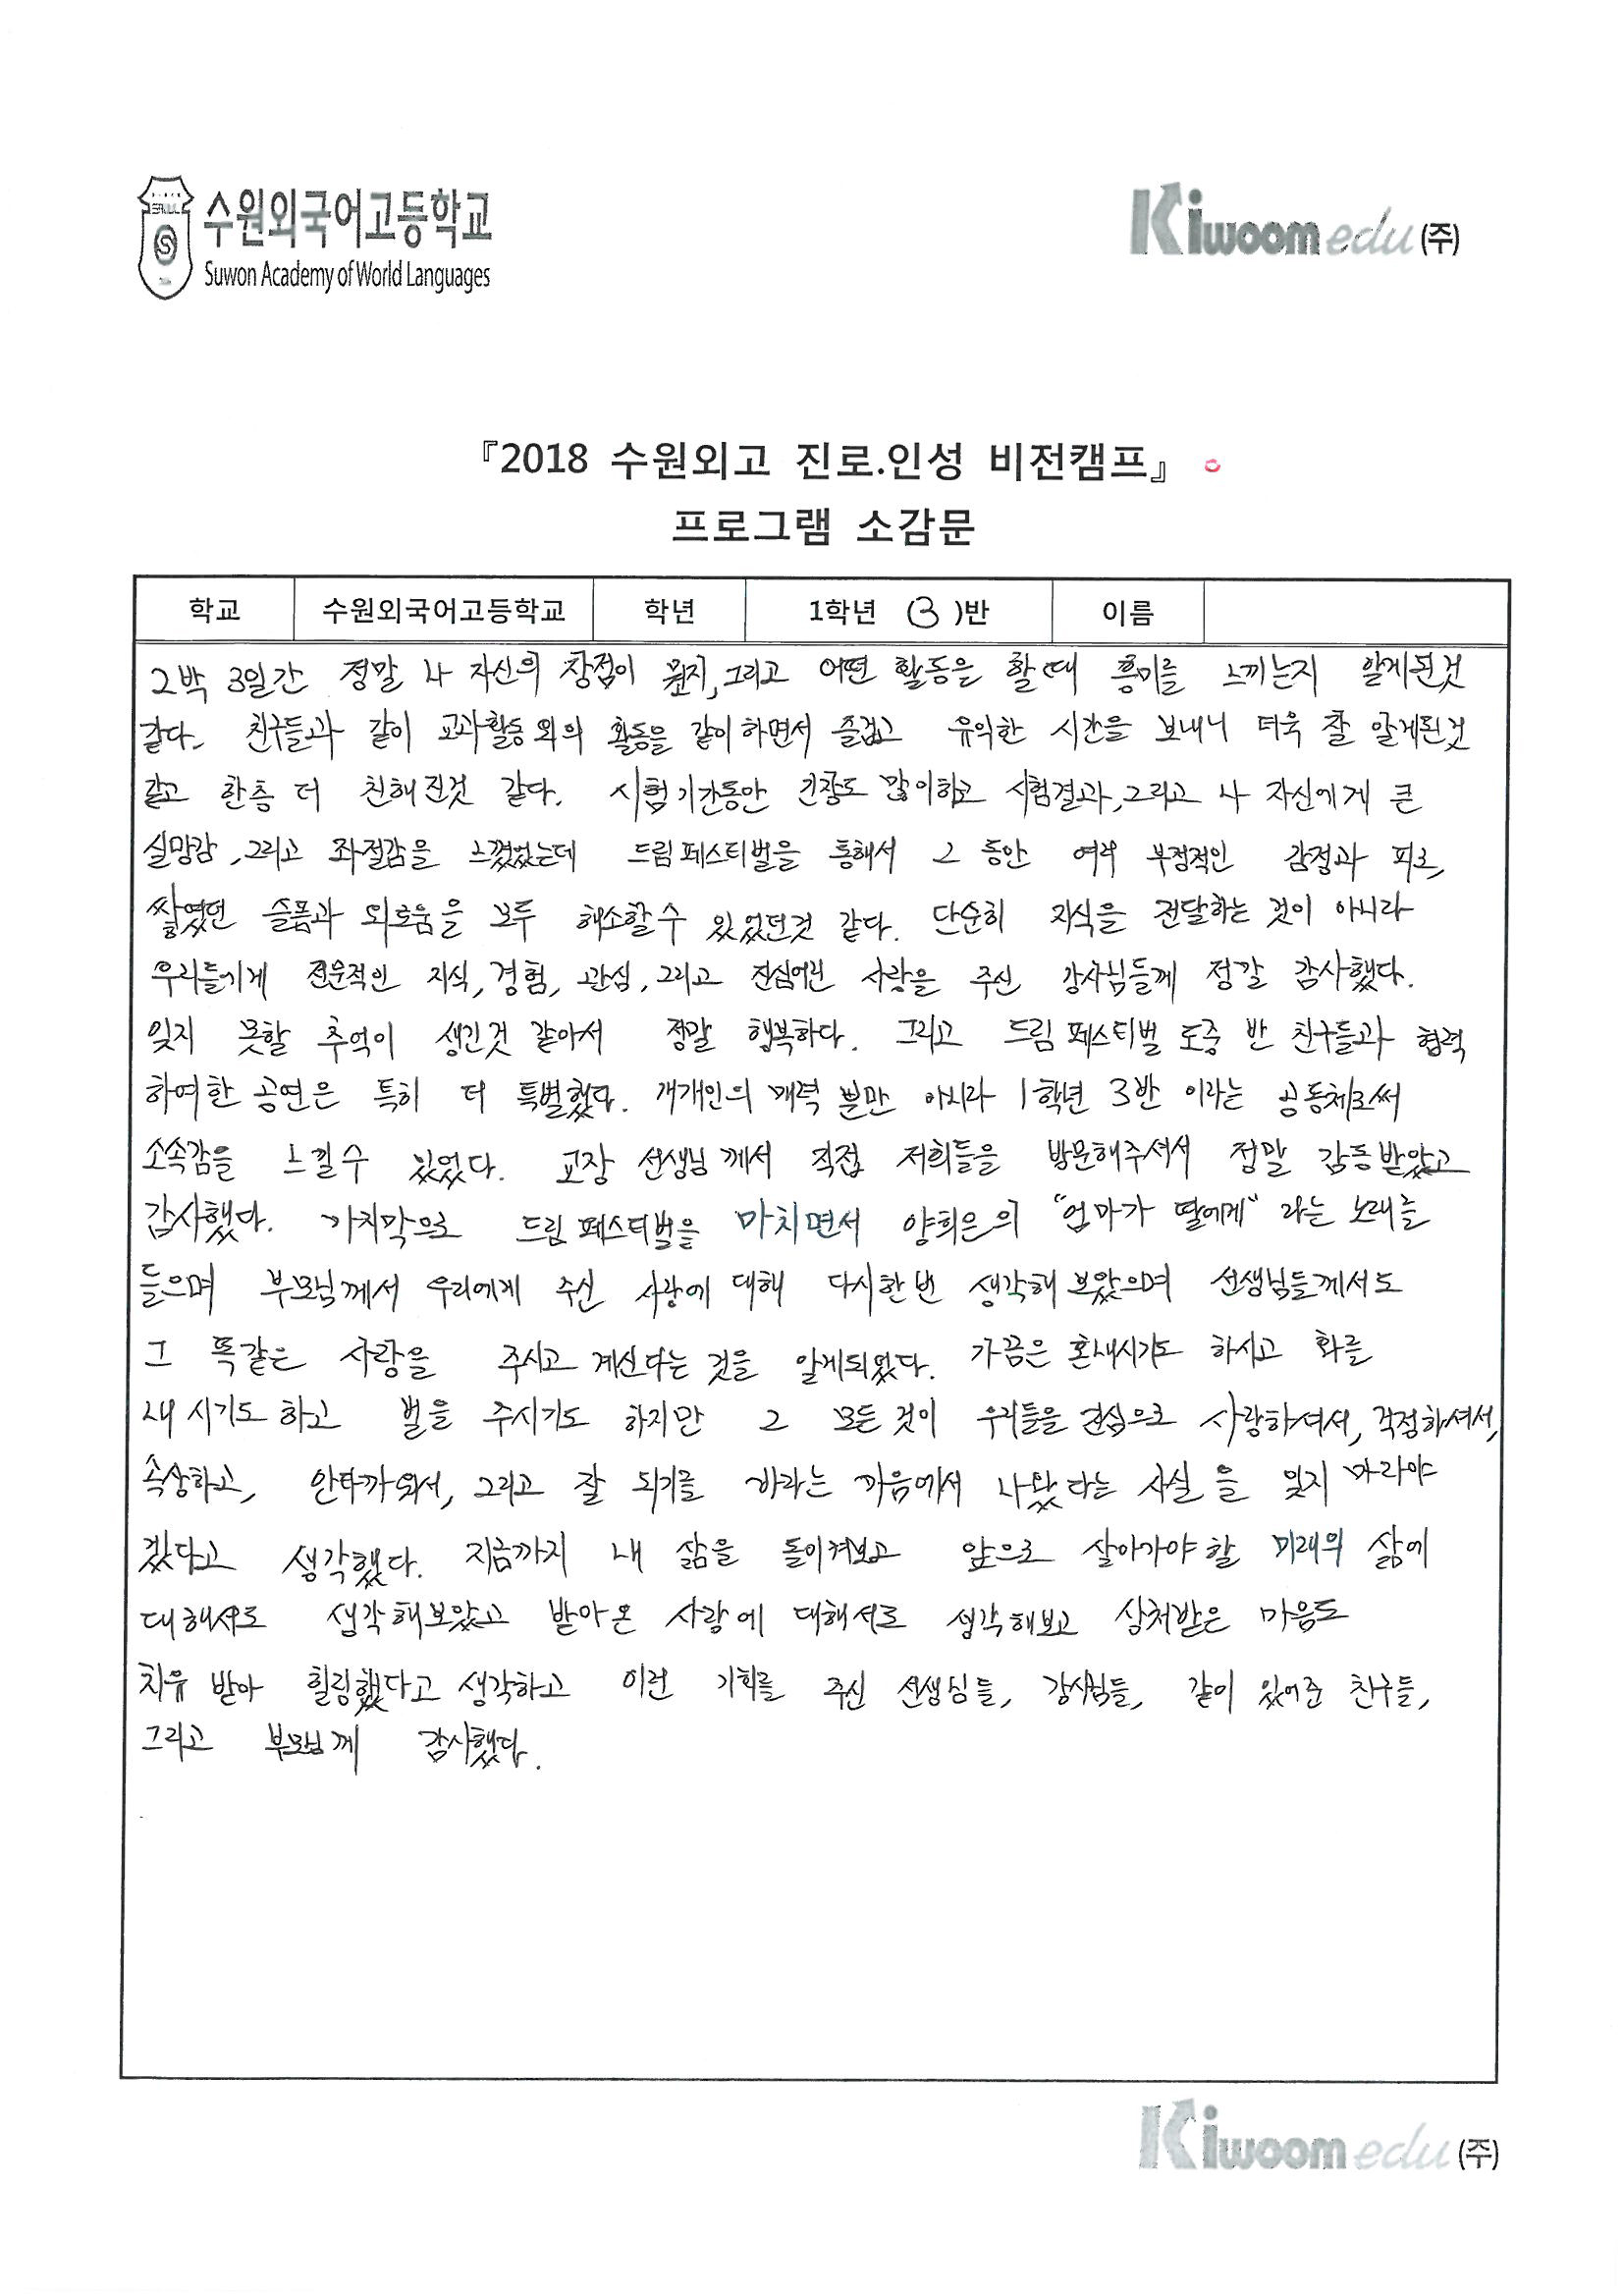 수원외국어고등학교
Suwon Academy of World Languages
Kiwoom edu (주)
『2018 수원외고 진로.인성 비전캠프』
프로그램 소감문
학교 수원외국어고등학교 학년 1학년 (3)반 이름
2박 3일간 정말 나 자신의 장점이 뭔지, 그리고 어떤 활동을 할 때 흥미를 느끼는지 알게된것
같다. 친구들과 같이 교과활동 외의 활동을 같이 하면서 즐겁고 유익한 시간을 보내니 더욱 잘 알게된것
같고 한층 더 친해진것 같다. 시험기간동안 긴장도 많이하고 시험결과, 그리고 나 자신에게 큰
실망감, 그리고 좌절감을 느꼈었는데 드림페스티벌을 통해서 그 동안 여러 부정적인 감정과 피로,
쌓였던 슬픔과 외로움을 모두 해소할수 있었던것 같다. 단순히 지식을 전달하는 것이 아니라
우리들에게 전문적인 지식, 경험, 관심, 그리고 진심어린 사랑을 주신 강사님들께 정말 감사했다.
잊지 못할 추억이 생긴것 같아서 정말 행복하다. 그리고 드림페스티벌 도중 반 친구들과 협력
하여한 공연은 특히 더 특별했다. 개개인의 매력 뿐만 아니라 1학년 3반 이라는 공동체로써
소속감을 느낄수 있었다. 교장 선생님께서 직접 저희들을 방문해주셔서 정말 감동받았고
감사했다. 마지막으로 드림페스티벌을 마치면서 양희은의 "엄마가 딸에게" 라는 노래를
들으며 부모님께서 우리에게 주신 사랑에 대해 다시한번 생각해 보았으며 선생님들께서도
그 똑같은 사랑을 주시고 계신다는 것을 알게되었다. 가끔은 혼내시기도 하시고 화를
내시기도 하고 벌을 주시기도 하지만 그 모든 것이 우리들을 진심으로 사랑하셔서, 걱정하셔서,
속상하고, 안타까워서, 그리고 잘 되기를 바라는 마음에서 나왔다는 사실을 잊지 마라야
겠다고 생각했다. 지금까지 내 삶을 돌이켜보고 앞으로 살아가야할 미래의 삶에
대해서도 생각해보았고 받아온 사랑에 대해서도 생각해보고 상처받은 마음도
치유 받아 힐링했다고 생각하고 이런 기회를 주신 선생님들, 강사님들, 같이 있어준 친구들,
그리고 부모님께 감사했다.
Kiwoom edu (주)